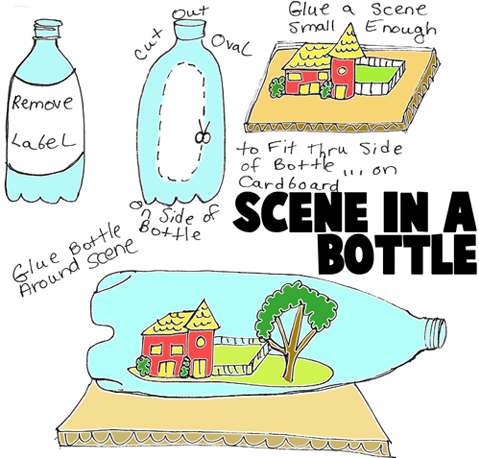 Remove
Label
Cut Out Oval
On Side of
Bottle
Glue a Scene
Small Enough
to Fit thru Side
of Bottle ... on
Cardboard
SCENE IN A
BOTTLE
Glue Bottle
Around Scene